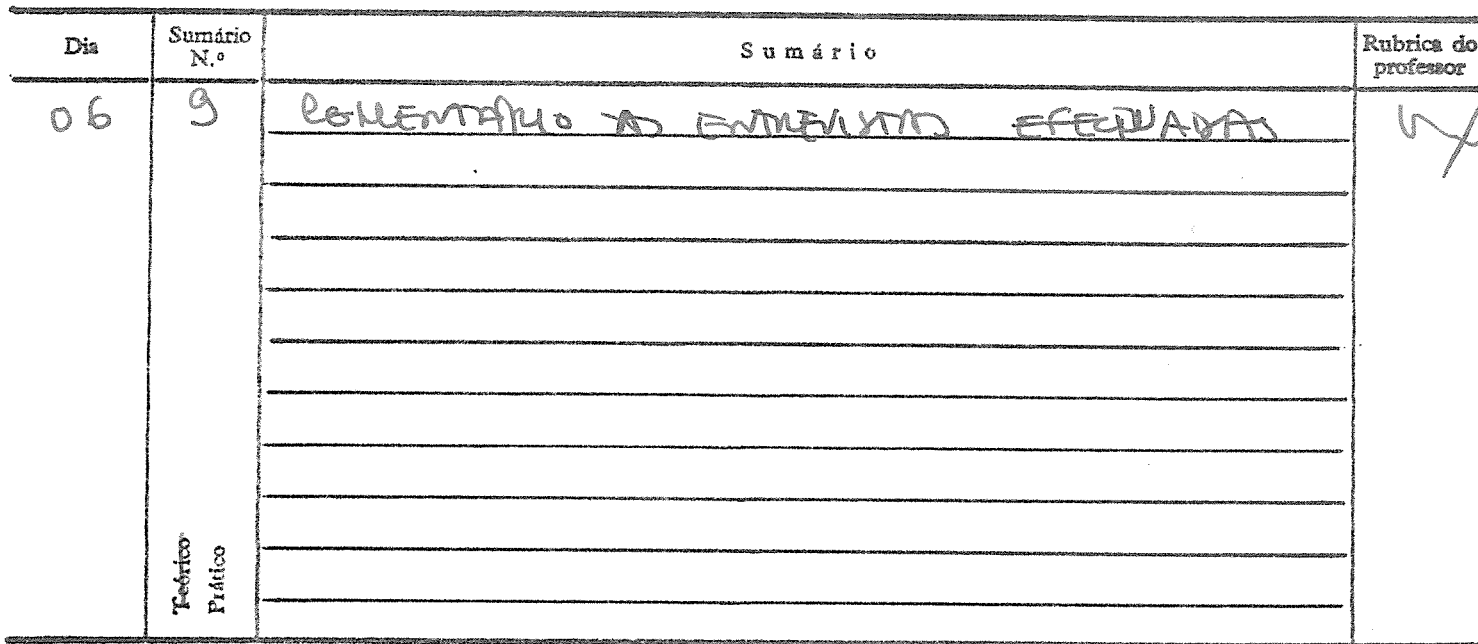 Dia
Sumário N.º
Sumário
Rubrica do professor
06
9
COMENTÁRIO ÀS ENTREVISTAS EFECTUADAS
Teórico
Prático